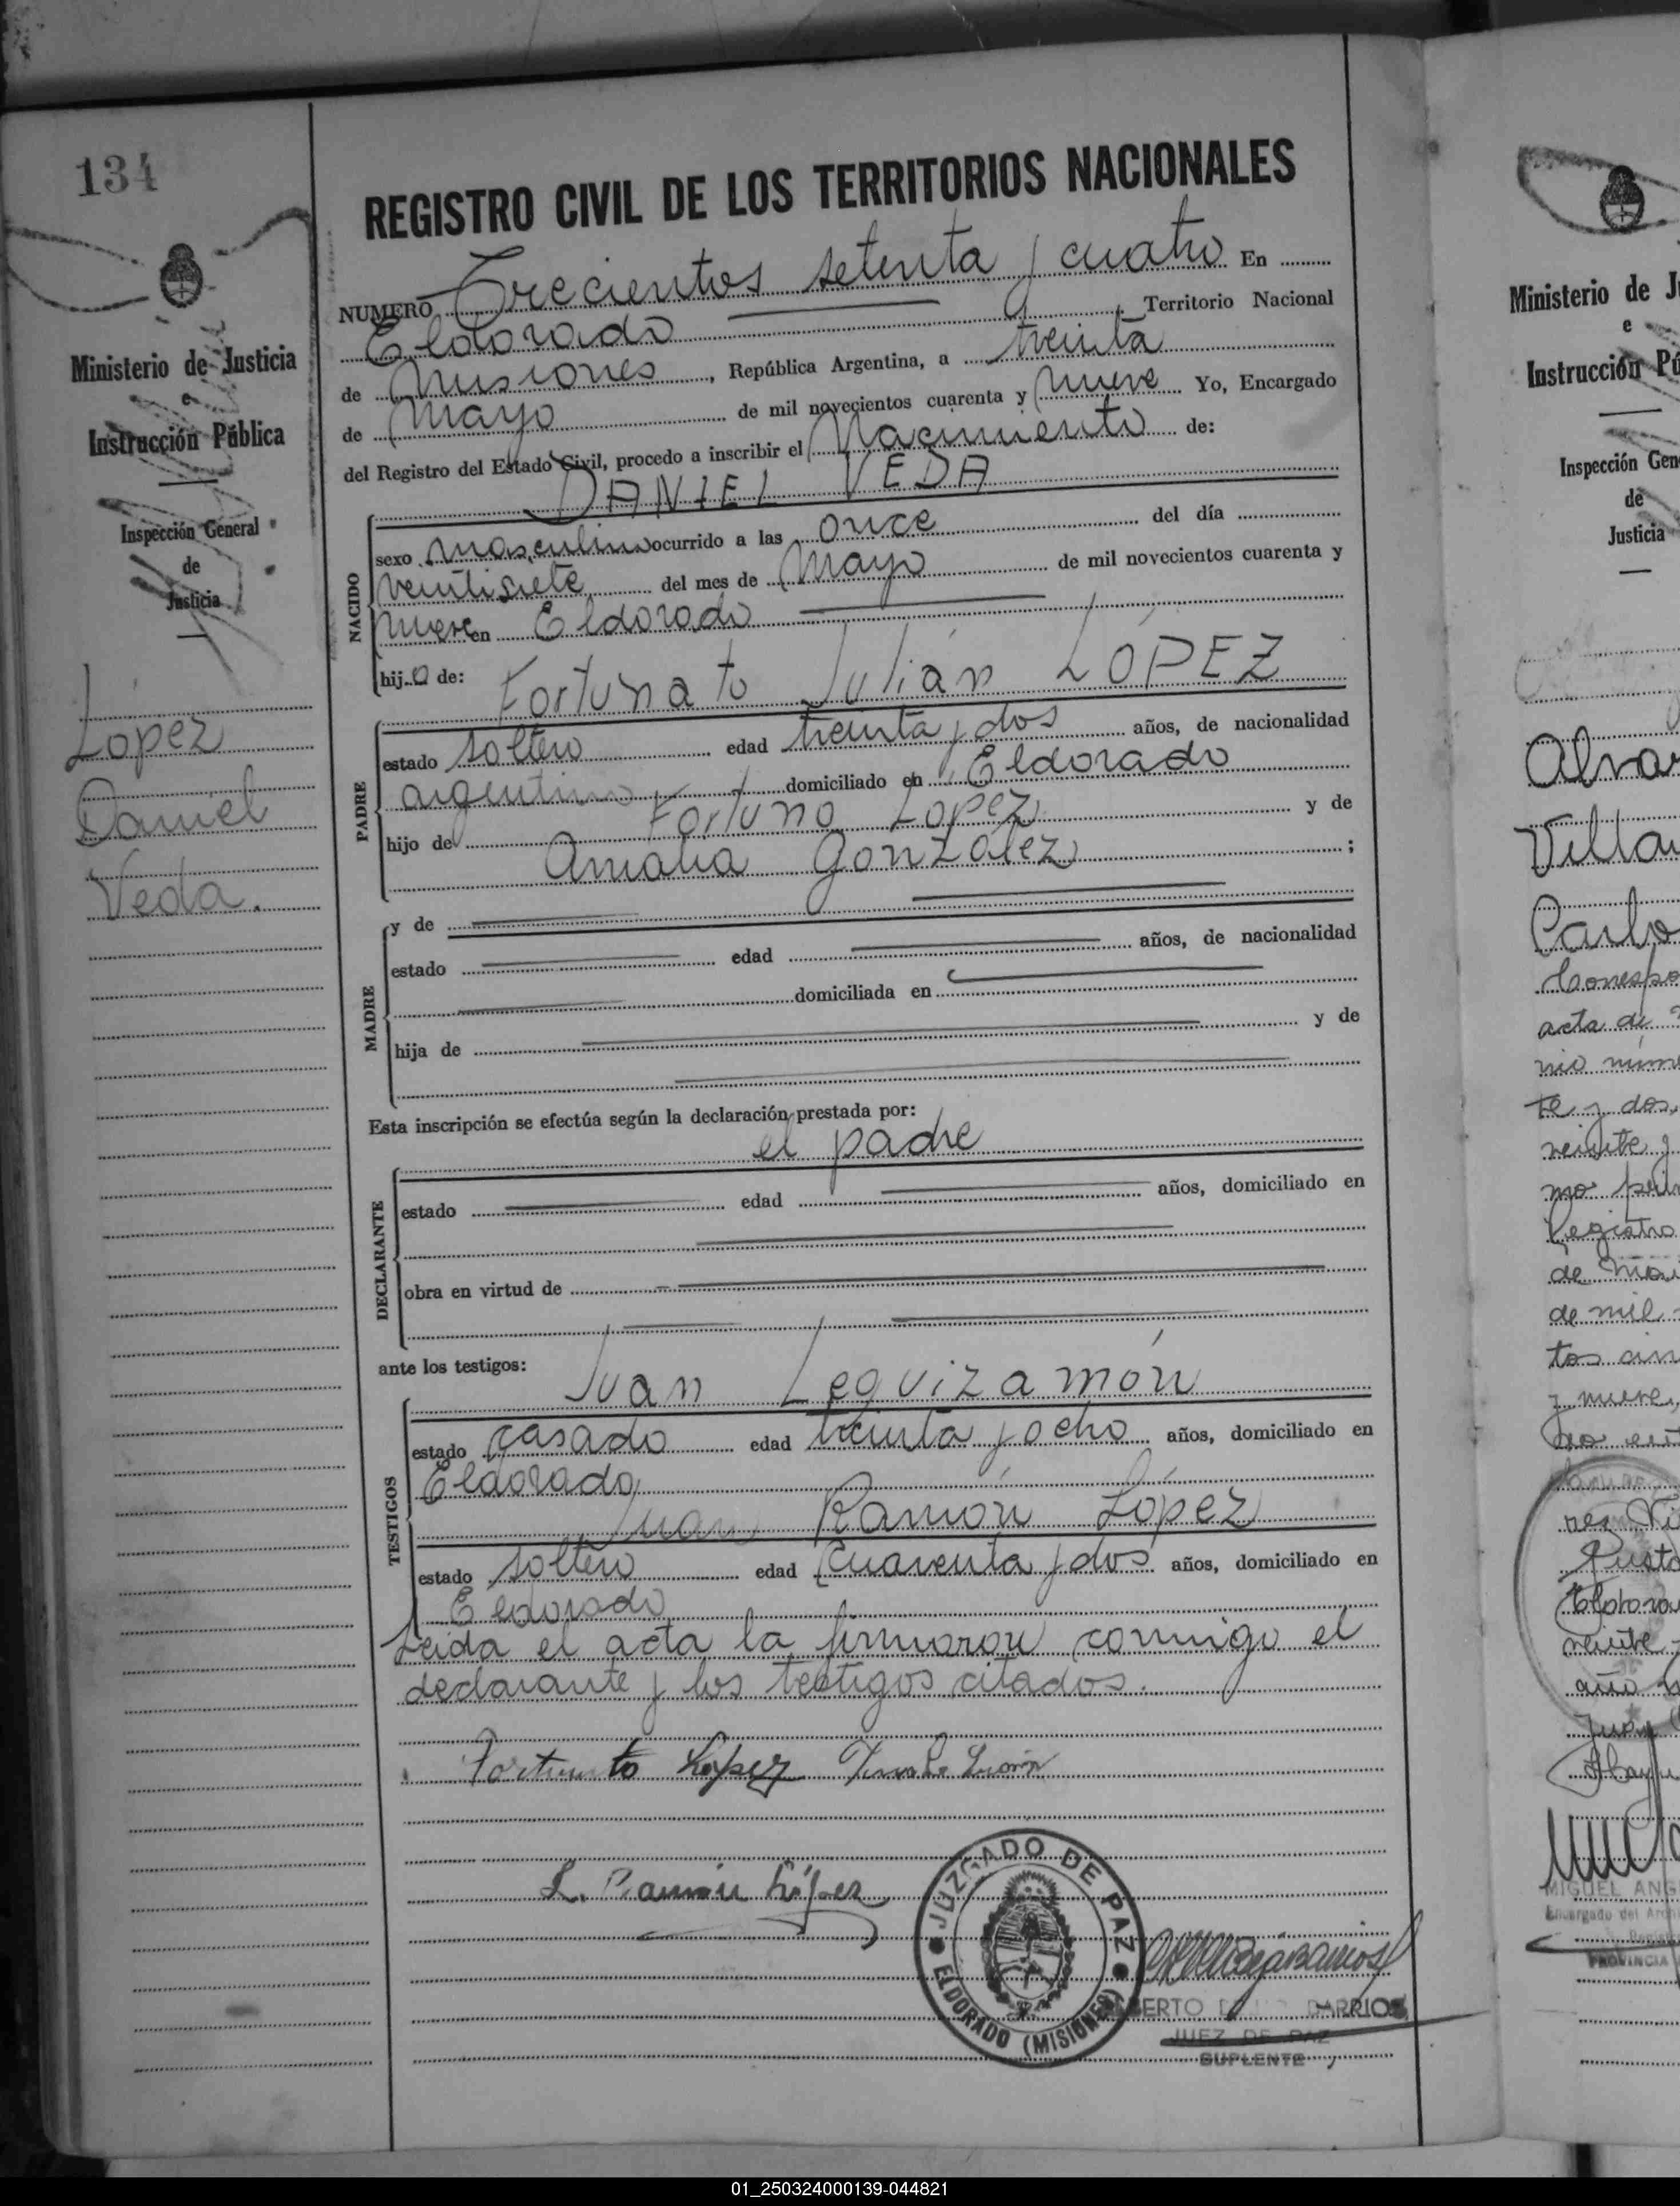 134
REGISTRO CIVIL DE LOS TERRITORIOS NACIONALES
NUMERO Trecientos setenta y cuatro En
Eldorado Territorio Nacional
de Misiones, República Argentina, a treinta
de mayo de mil novecientos cuarenta y nueve Yo, Encargado
del Registro del Estado Civil, procedo a inscribir el Nacimiento de:
DANIEL VEDA
NACIDO
sexo masculino ocurrido a las once del día
veintisiete del mes de Mayo de mil novecientos cuarenta y
nueve en Eldorado
hijo de: Fortunato Julián LÓPEZ
PADRE
estado soltero edad treinta y dos años, de nacionalidad
argentino domiciliado en Eldorado
hijo de Fortuno Lopez y de
Amalia González ;
MADRE
y de
estado edad años, de nacionalidad
domiciliada en
hija de y de
Esta inscripción se efectúa según la declaración prestada por:
el padre
DECLARANTE
estado edad años, domiciliado en
obra en virtud de
ante los testigos: Juan Leguizamón
TESTIGOS
estado casado edad treinta y ocho años, domiciliado en
Eldorado
Juan Ramón López
estado soltero edad cuarenta y dos años, domiciliado en
Eldorado
Leida el acta la firmaron conmigo el
declarante y los testigos citados.
Fortunato López
L. Ramón López
JUZGADO DE PAZ
ELDORADO (MISIONES)
BARRIOS
JUEZ DE PAZ
SUPLENTE
Ministerio de Justicia
e
Instrucción Pública
Inspección General
de
Justicia
López
Daniel
Veda.
Ministerio de Ju
e
Instrucción Pú
Inspección Gen
de
Justicia
Alvar
Villa
Carlo
Correspo
acta de
nio núme
te y dos,
veinte y
mo
Registro
de
de mil
y nueve,
MIGUEL ANG
Encargado del Arch
PROVINCIA
01_250324000139-044821